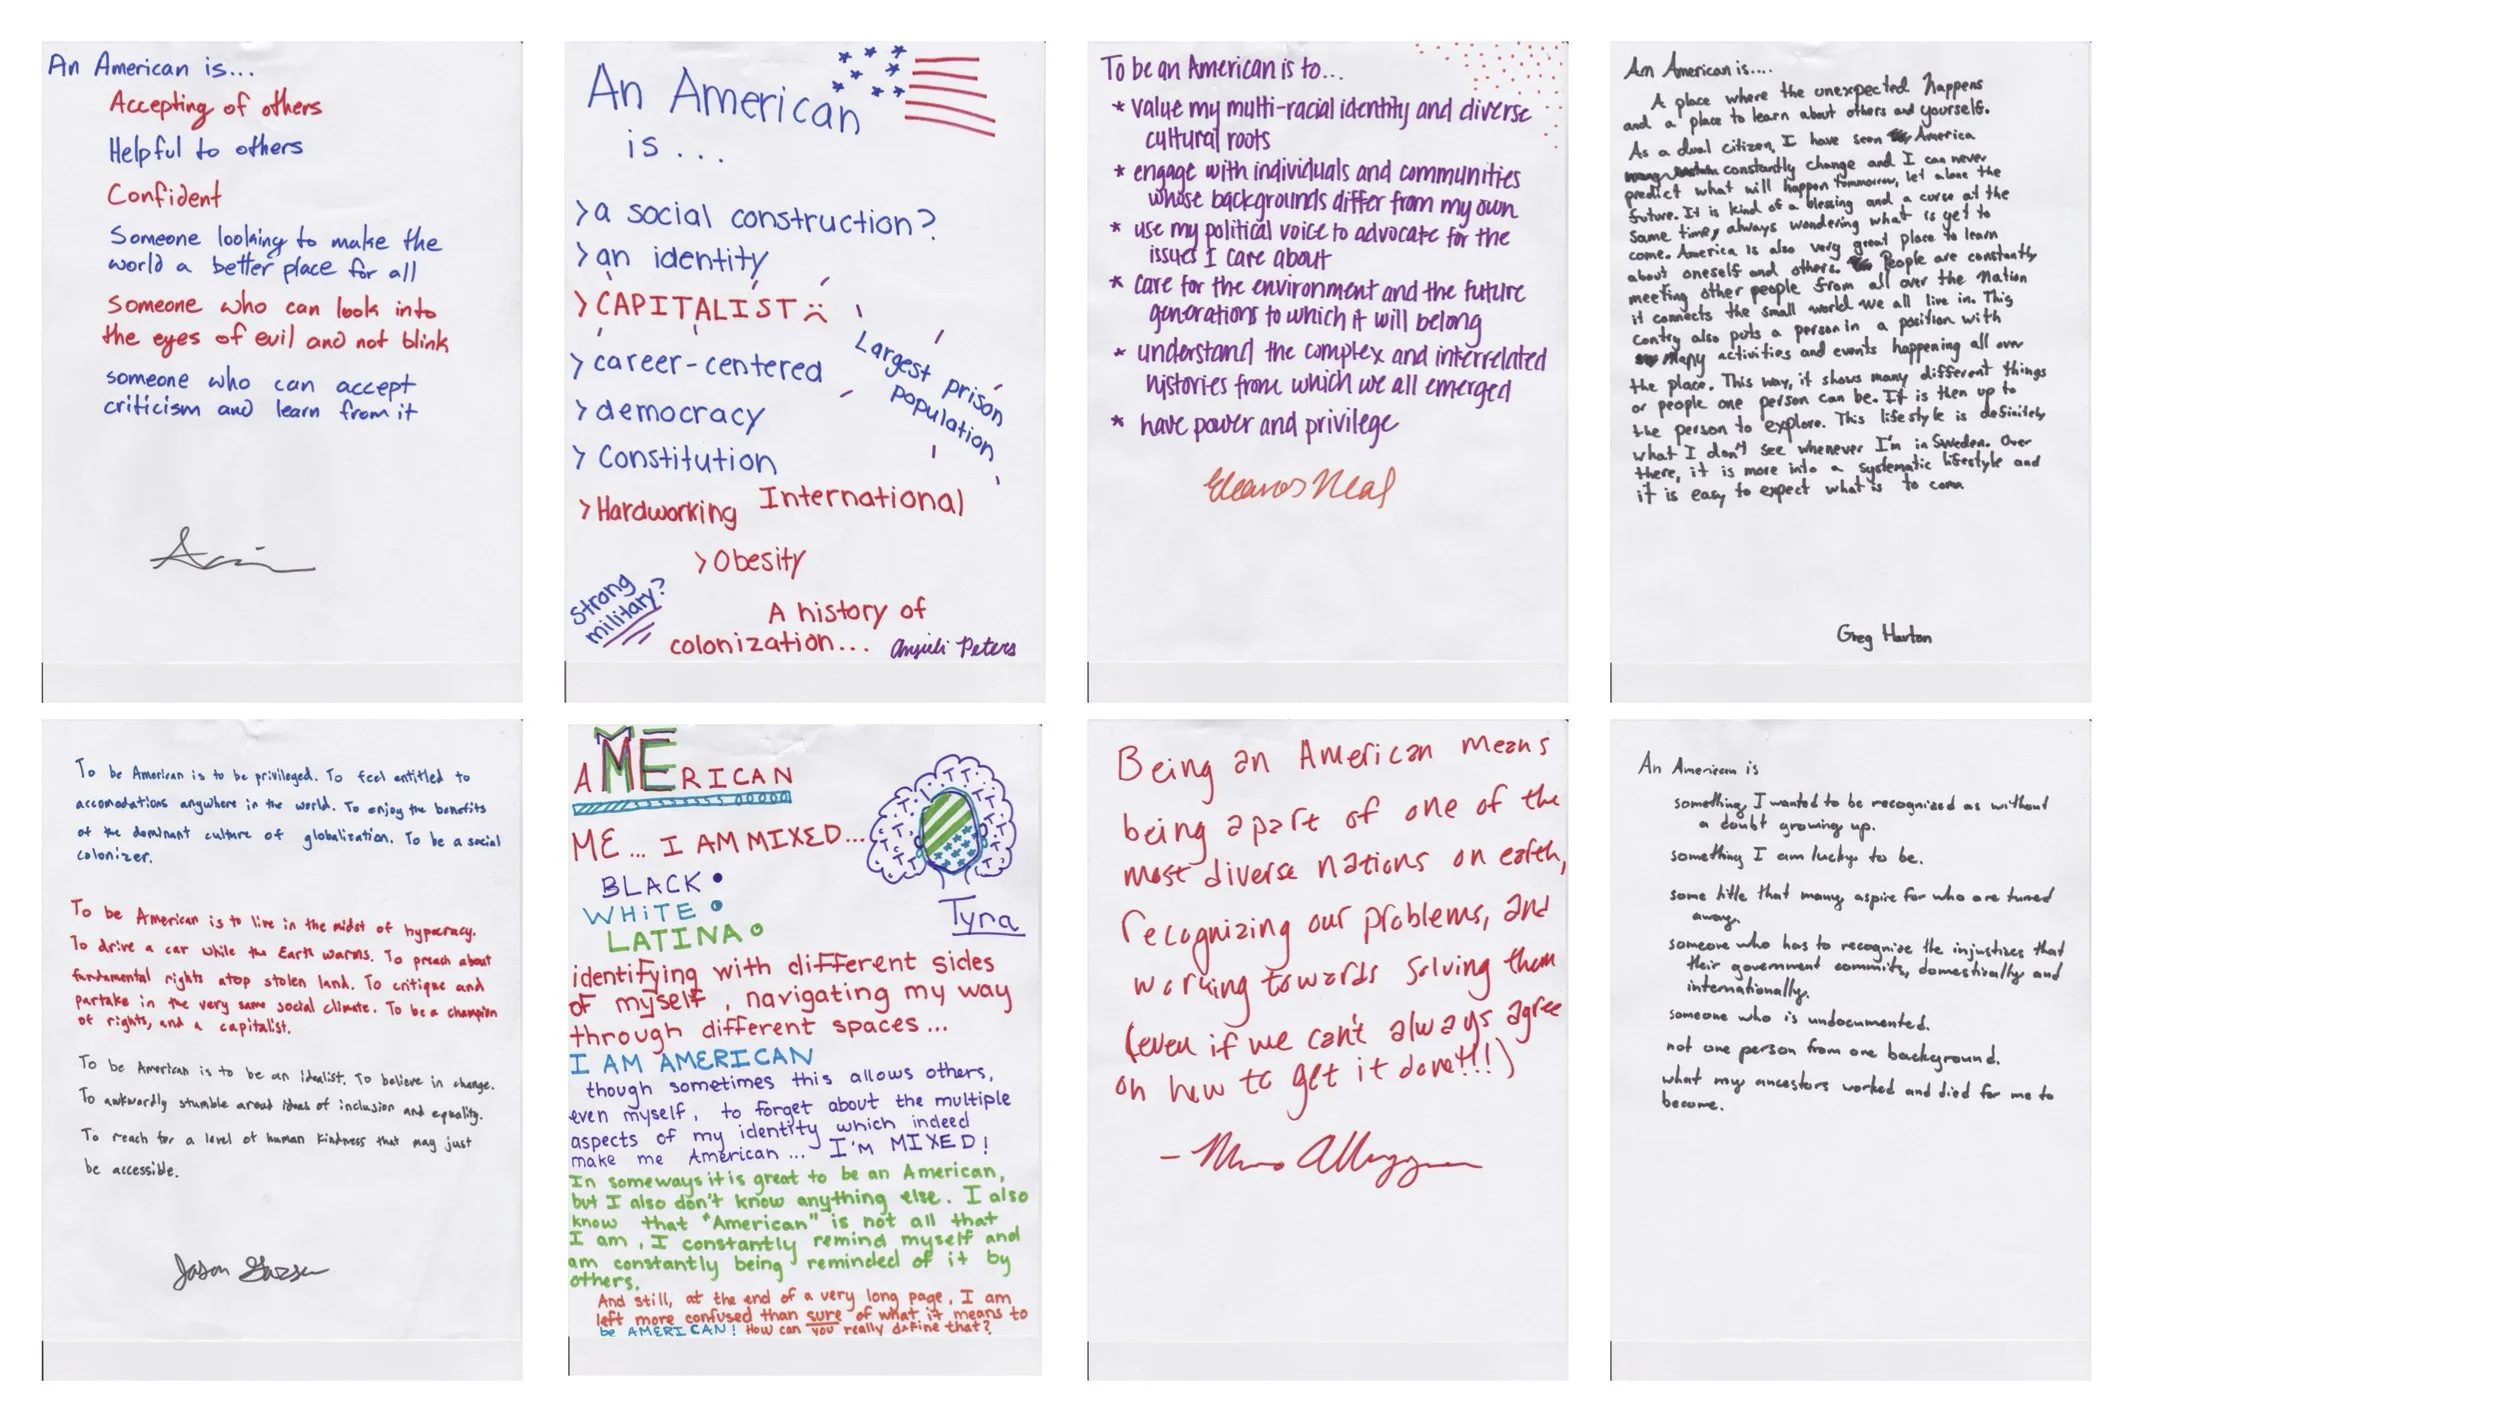 An American is...
Accepting of others
Helpful to others
Confident
Someone looking to make the
world a better place for all
Someone who can look into
the eyes of evil and not blink
someone who can accept
criticism and learn from it
An American
is...
>a social construction?
>an identity
>CAPITALIST
>career-centered
>democracy
>Constitution
>Hardworking
Largest prison
population
International
>Obesity
Strong
military?
A history of
colonization...
Anjuli Peters
To be an American is to...
* value my multi-racial identity and diverse
cultural roots
* engage with individuals and communities
whose backgrounds differ from my own
* use my political voice to advocate for the
issues I care about
* care for the environment and the future
generations to which it will belong
* understand the complex and interrelated
histories from which we all emerged
* have power and privilege
Eleanor Neal
An American is....
A place where the unexpected happens
and a place to learn about others and yourself.
As a dual citizen, I have seen America
constantly change and I can never
predict what will happen tommorow, let alone the
future. It is kind of a blessing and a curse at the
same time, always wondering what is yet to
come. America is also very great place to learn
about oneself and others. People are constantly
meeting other people from all over the nation
it connects the small world we all live in. This
contry also puts a person in a position with
many activities and events happening all over
the place. This way, it shows many different things
or people one person can be. It is then up to
the person to explore. This lifestyle is definitely
what I don't see whenever I'm in Sweden. Over
there, it is more into a systematic lifestyle and
it is easy to expect what is to come
Greg Harton
To be American is to be privileged. To feel entitled to
accomodations anywhere in the world. To enjoy the benefits
of the dominant culture of globalization. To be a social
colonizer.
To be American is to live in the midst of hypocracy.
To drive a car while the Earth warms. To preach about
fundamental rights atop stolen land. To critique and
partake in the very same social climate. To be a champion
of rights, and a capitalist.
To be American is to be an idealist. To believe in change.
To awkwardly stumble aroud ideas of inclusion and equality.
To reach for a level of human kindness that may just
be accessible.
Jason
AMERICAN
ME... I AM MIXED...
BLACK
WHITE
LATINA
Tyra
identifying with different sides
of myself, navigating my way
through different spaces...
I AM AMERICAN
though sometimes this allows others,
even myself, to forget about the multiple
aspects of my identity which indeed
make me American... I'M MIXED!
In someways it is great to be an American,
but I also don't know anything else. I also
know that "American" is not all that
I am, I constantly remind myself and
am constantly being reminded of it by
others.
And still, at the end of a very long page, I am
left more confused than sure of what it means to
be AMERICAN! How can you really define that?
Being an American means
being a part of one of the
most diverse nations on earth,
recognizing our problems, and
working towards solving them
(even if we can't always agree
on how to get it done!!!)
An American is
something I wanted to be recognized as without
a doubt growing up.
something I am lucky to be.
some title that many aspire for who are turned
away.
someone who has to recognize the injustices that
their government commits, domestically and
internationally.
someone who is undocumented.
not one person from one background.
what my ancestors worked and died for me to
become.